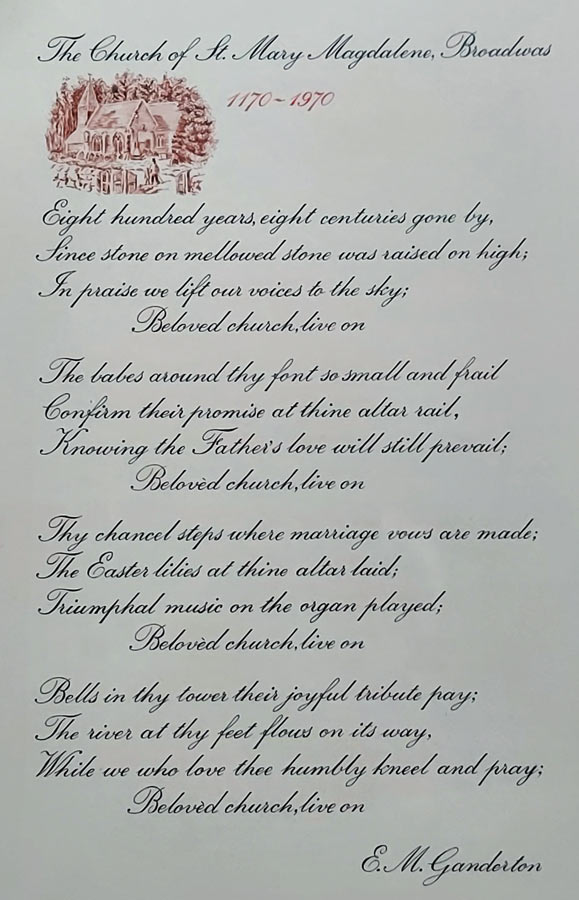 The Church of St. Mary Magdalene, Broadwas
1170 - 1970
Eight hundred years, eight centuries gone by,
Since stone on mellowed stone was raised on high;
In praise we lift our voices to the sky;
Beloved church, live on
The babes around thy font so small and frail
Confirm their promise at thine altar rail,
Knowing the Father's love will still prevail;
Belovèd church, live on
Thy chancel steps where marriage vows are made;
The Easter lilies at thine altar laid;
Triumphal music on the organ played;
Belovèd church, live on
Bells in thy tower their joyful tribute pay;
The river at thy feet flows on its way,
While we who love thee humbly kneel and pray;
Belovèd church, live on
E. M. Ganderton